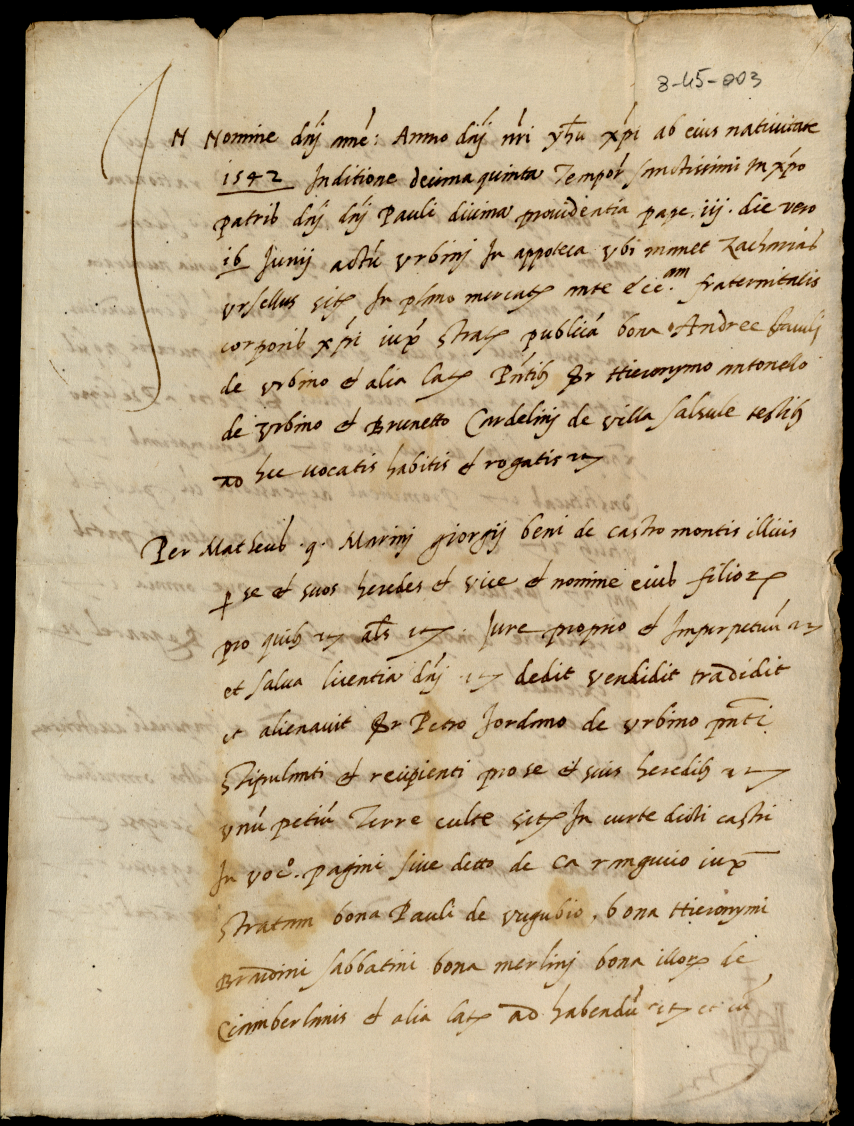 8-45-003
IN Nomine dnj ame: Anno dnj nri yhu xpi ab eius nativitate
1542 Inditione decima quinta Tempor Sanctissimi in xpo
patris dnj dnj Pauli divina providentia pape .iij. die vero
16 Junij actu Urbinj In appoteca ubi manet Zacharias
Ursellus sit In plano mercat ante ecc.am fraternitatis
corporis xpi iux strat publica bona Andree Pauli
de Urbino et alia lat Pntib Sr Hieronymo Antonello
de Urbino et Brunetto Cardelinj de villa Salsule testib
ad hec vocatis habitis et rogatis
Per Matheus .q. Marinj giorgij beni de castro montis illius
p se et suos heredes et vice et nomine eius filior
pro quib als Jure proprio et Imperpetuu
et salva licentia dnj dedit vendidit tradidit
et alienavit Sr Petro Jordano de Urbino pnti
stipulanti et recipienti pro se et suis heredib
unu petiu Terre culte sit In curte dicti castri
In voc.o pagini sive detto de Ca ranguio iux
stratam bona Pauli de Eugubio, bona Hieronymi
Bradini Sabbatini bona merlinj bona illor de
Ciamberlanis et alia lat ad habendu